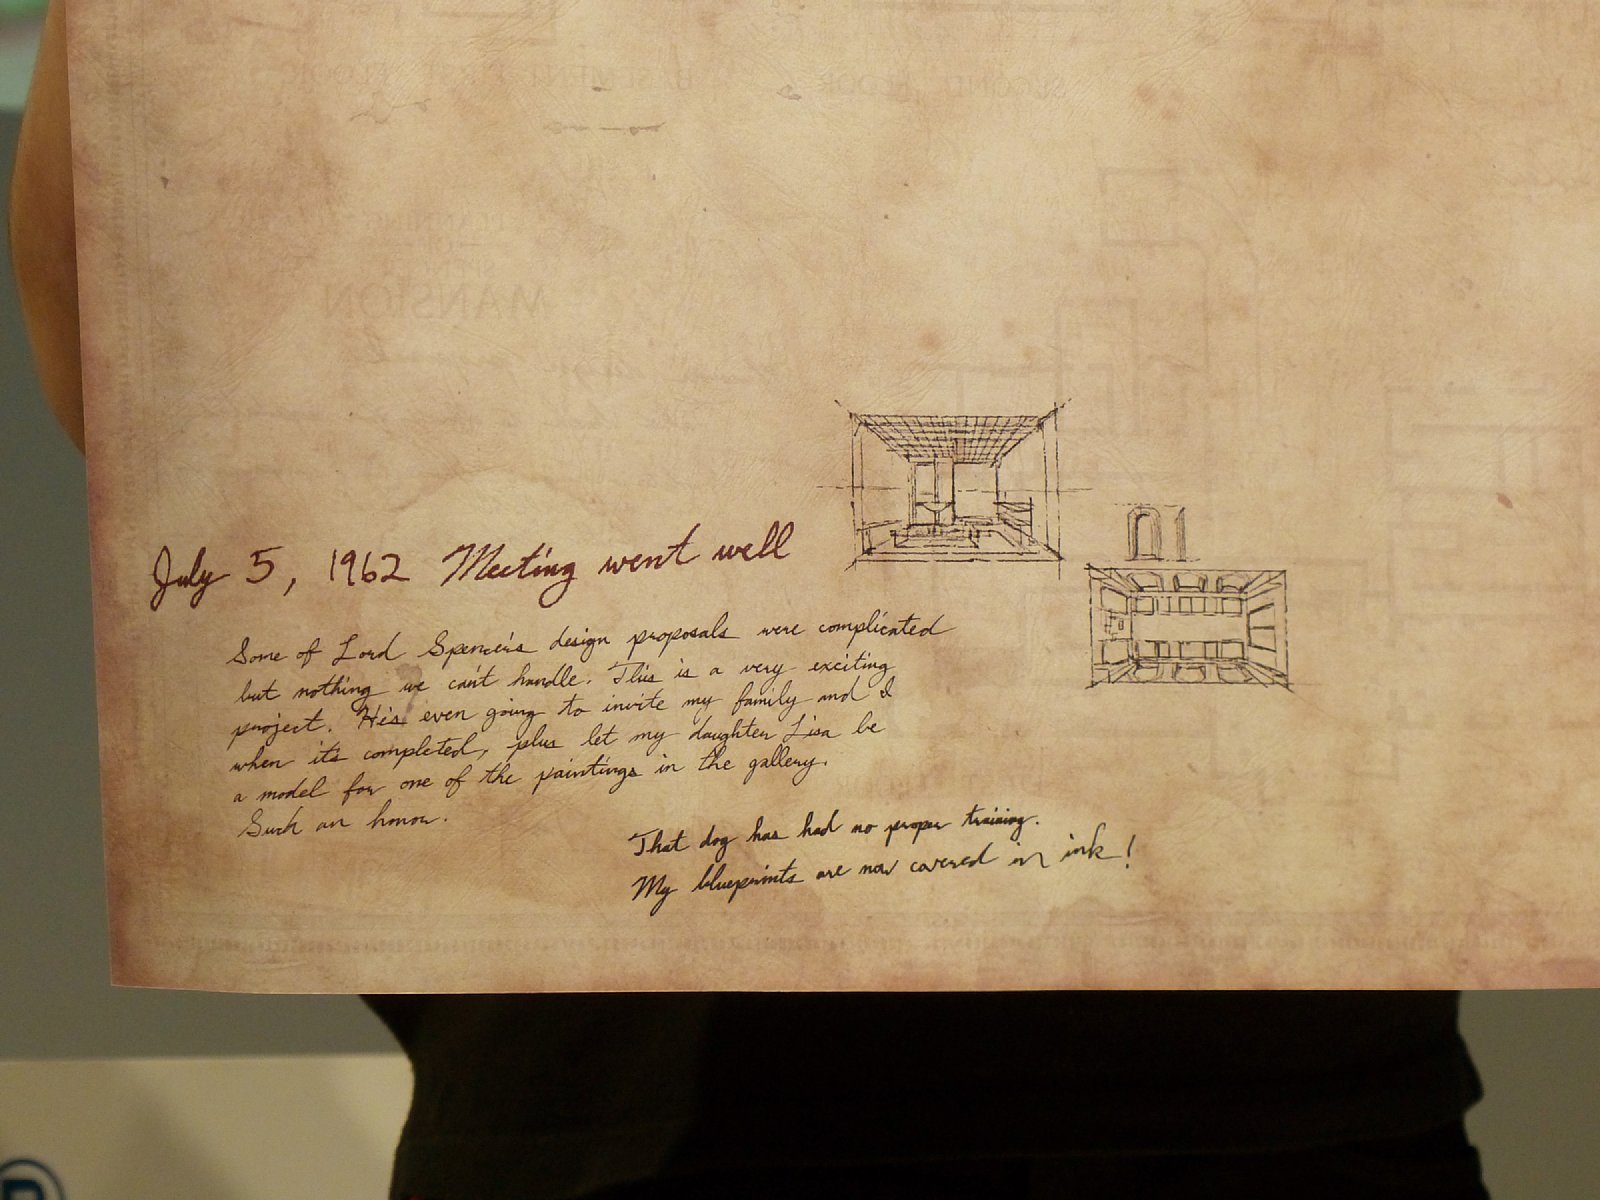 July 5, 1962 Meeting went well
Some of Lord Spencer's design proposals were complicated
but nothing we can't handle. This is a very exciting
project. He's even going to invite my family and I
when it's completed, plus let my daughter Lisa be
a model for one of the paintings in the gallery.
Such an honour.
That dog has had no proper training.
My blueprints are now covered in ink!
MANSION